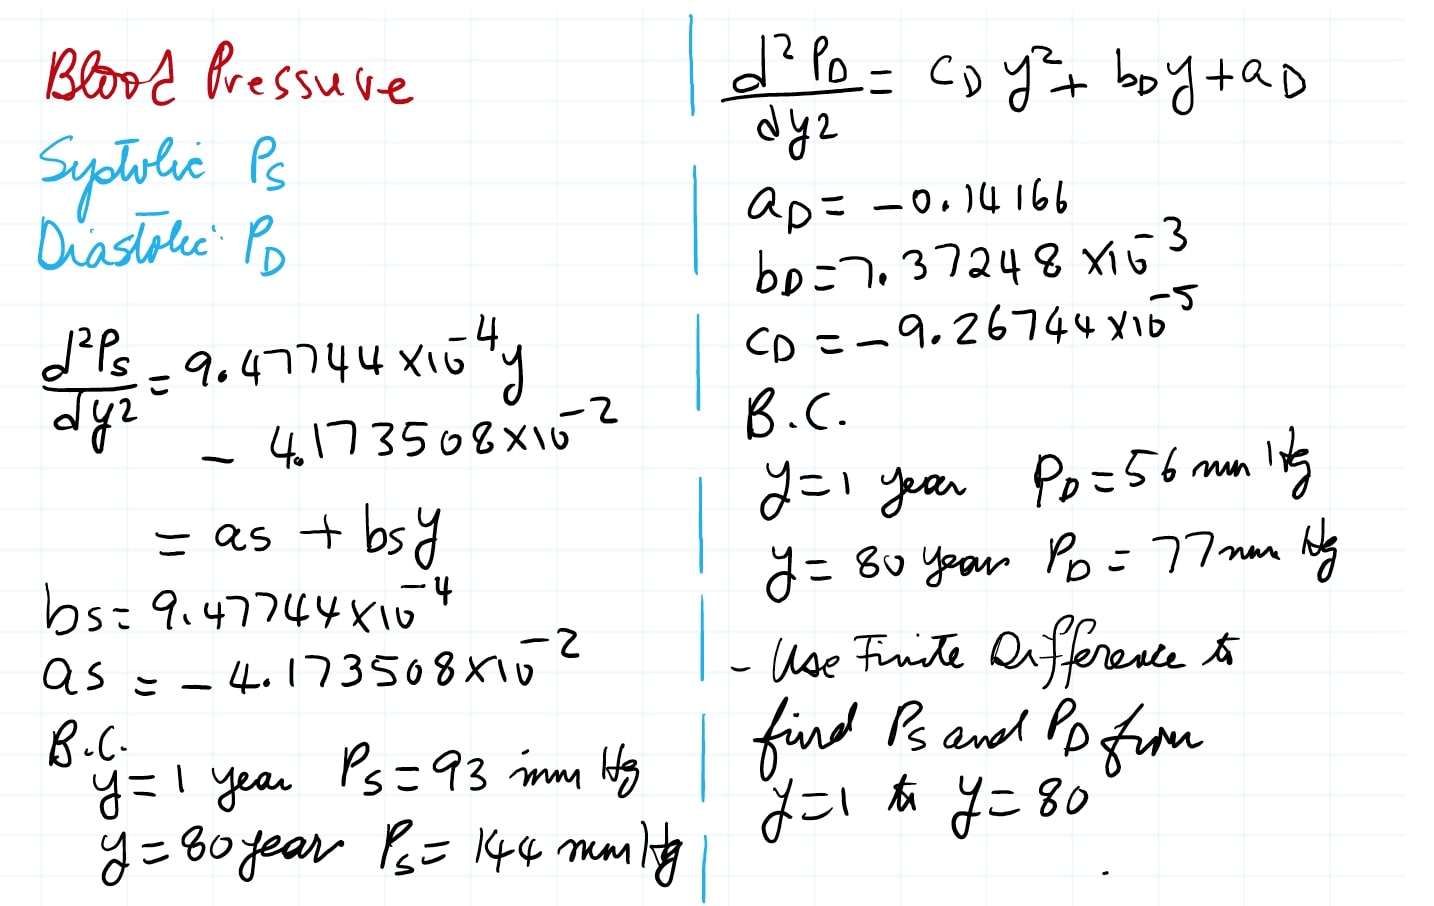 Blood Pressure
Systolic Ps
Diastolic: PD
d²Ps/dy2 = 9.47744 ×10^-4 y
- 4.173508×10^-2
= as + bsy
bs= 9.47744×10^-4
as = -4.173508×10^-2
B.C.
y=1 year Ps=93 mm Hg
y=80 year Ps= 144 mm Hg
d²PD/dy2 = CD y²+ bDy+aD
aD= -0.14166
bD=7.37248 ×10^-3
CD = -9.26744×10^-5
B.C.
y=1 year PD=56 mm Hg
y= 80 year PD= 77 mm Hg
- Use Finite Difference to
find Ps and PD from
y=1 to y=80